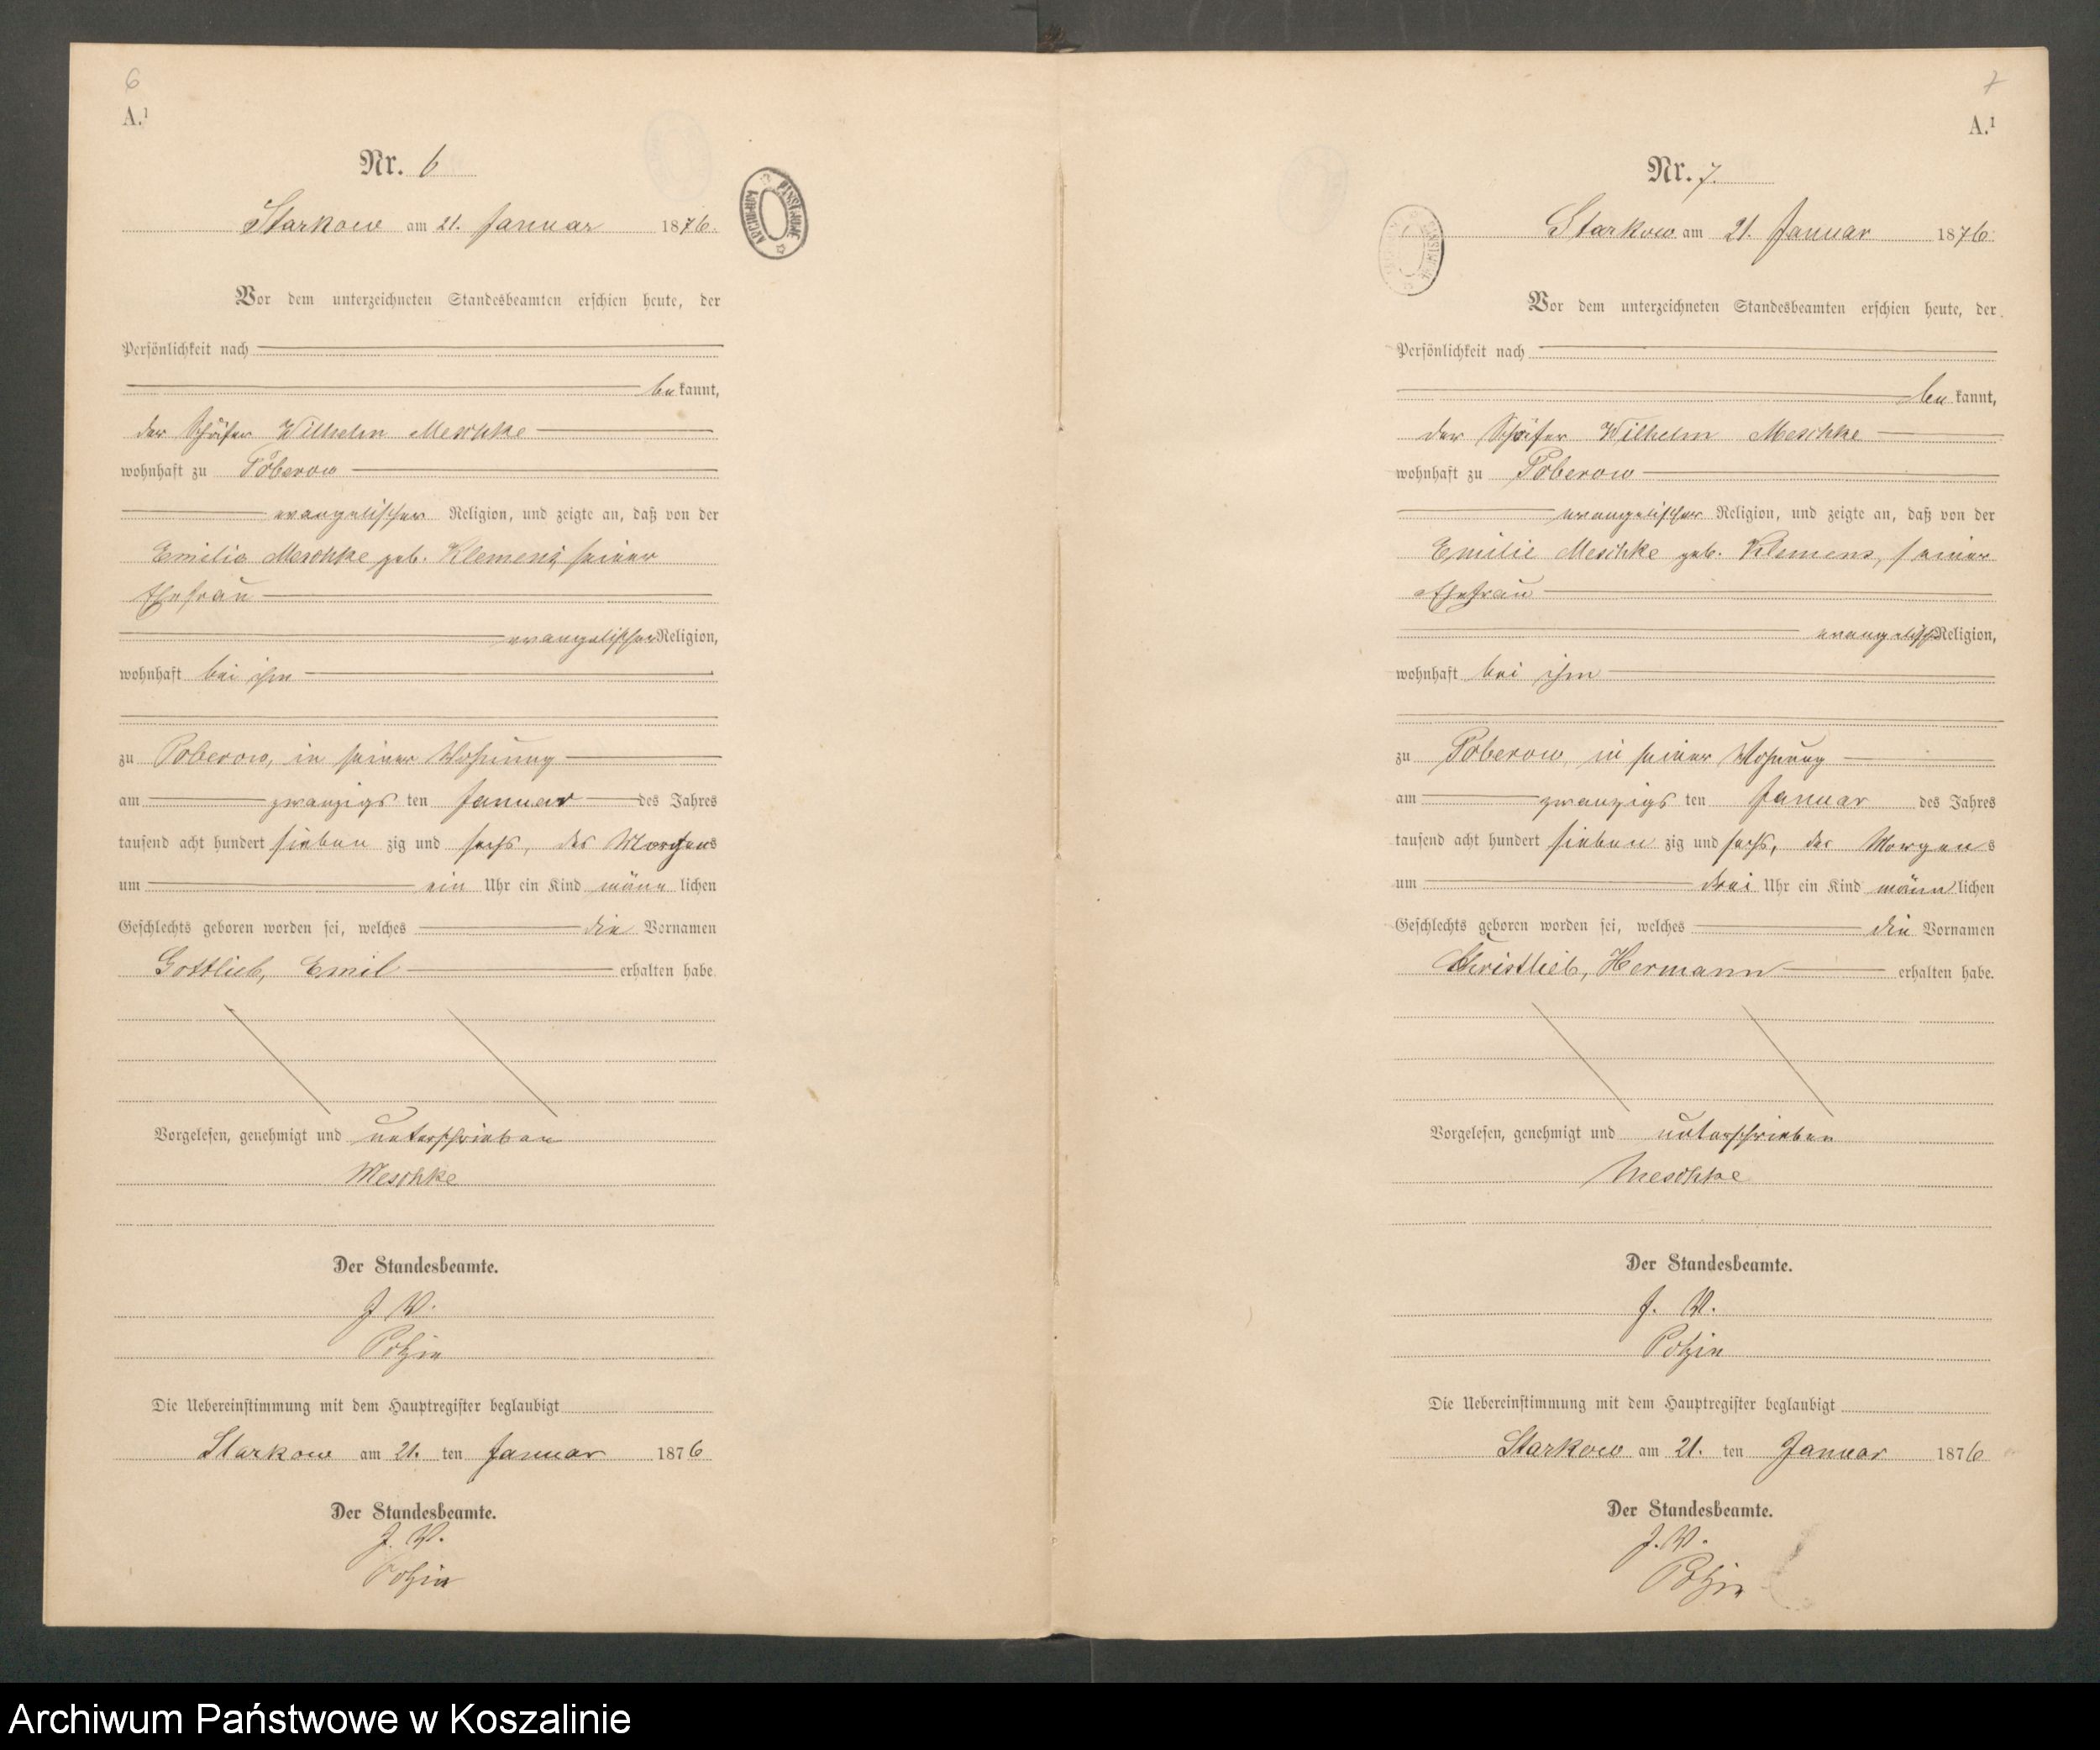 6
A.¹
Nr. 6
Starkow am 21. Januar 1876.
Vor dem unterzeichneten Standesbeamten erschien heute, der
Persönlichkeit nach
bekannt,
der Schäfer Wilhelm Meschke
wohnhaft zu Poberow
evangelischer Religion, und zeigte an, daß von der
Emilie Meschke geb. Klemens, seiner
Ehefrau
evangelischer Religion,
wohnhaft bei ihm
zu Poberow, in seiner Wohnung
am zwanzigsten Januar des Jahres
tausend acht hundert siebenzig und sechs, des Morgens
um ein Uhr ein Kind männlichen
Geschlechts geboren worden sei, welches die Vornamen
Gottlieb, Emil erhalten habe.
Vorgelesen, genehmigt und unterschrieben
Meschke
Der Standesbeamte.
J. V.
Polzin
Die Uebereinstimmung mit dem Hauptregister beglaubigt
Starkow am 21. ten Januar 1876
Der Standesbeamte.
J. V.
Polzin
ARCHIWUM PAŃSTWOWE
7
A.¹
Nr. 7.
Starkow am 21. Januar 1876
Vor dem unterzeichneten Standesbeamten erschien heute, der
Persönlichkeit nach
bekannt,
der Schäfer Wilhelm Meschke
wohnhaft zu Poberow
evangelischer Religion, und zeigte an, daß von der
Emilie Meschke geb. Klemens, seiner
Ehefrau
evangelisch Religion,
wohnhaft bei ihm
zu Poberow, in seiner Wohnung
am zwanzigsten Januar des Jahres
tausend acht hundert siebenzig und sechs, des Morgens
um drei Uhr ein Kind männlichen
Geschlechts geboren worden sei, welches die Vornamen
Christlieb, Hermann erhalten habe.
Vorgelesen, genehmigt und unterschrieben
Meschke
Der Standesbeamte.
J. V.
Polzin
Die Uebereinstimmung mit dem Hauptregister beglaubigt
Starkow am 21. ten Januar 1876
Der Standesbeamte.
J. V.
Polzin
Archiwum Państwowe w Koszalinie